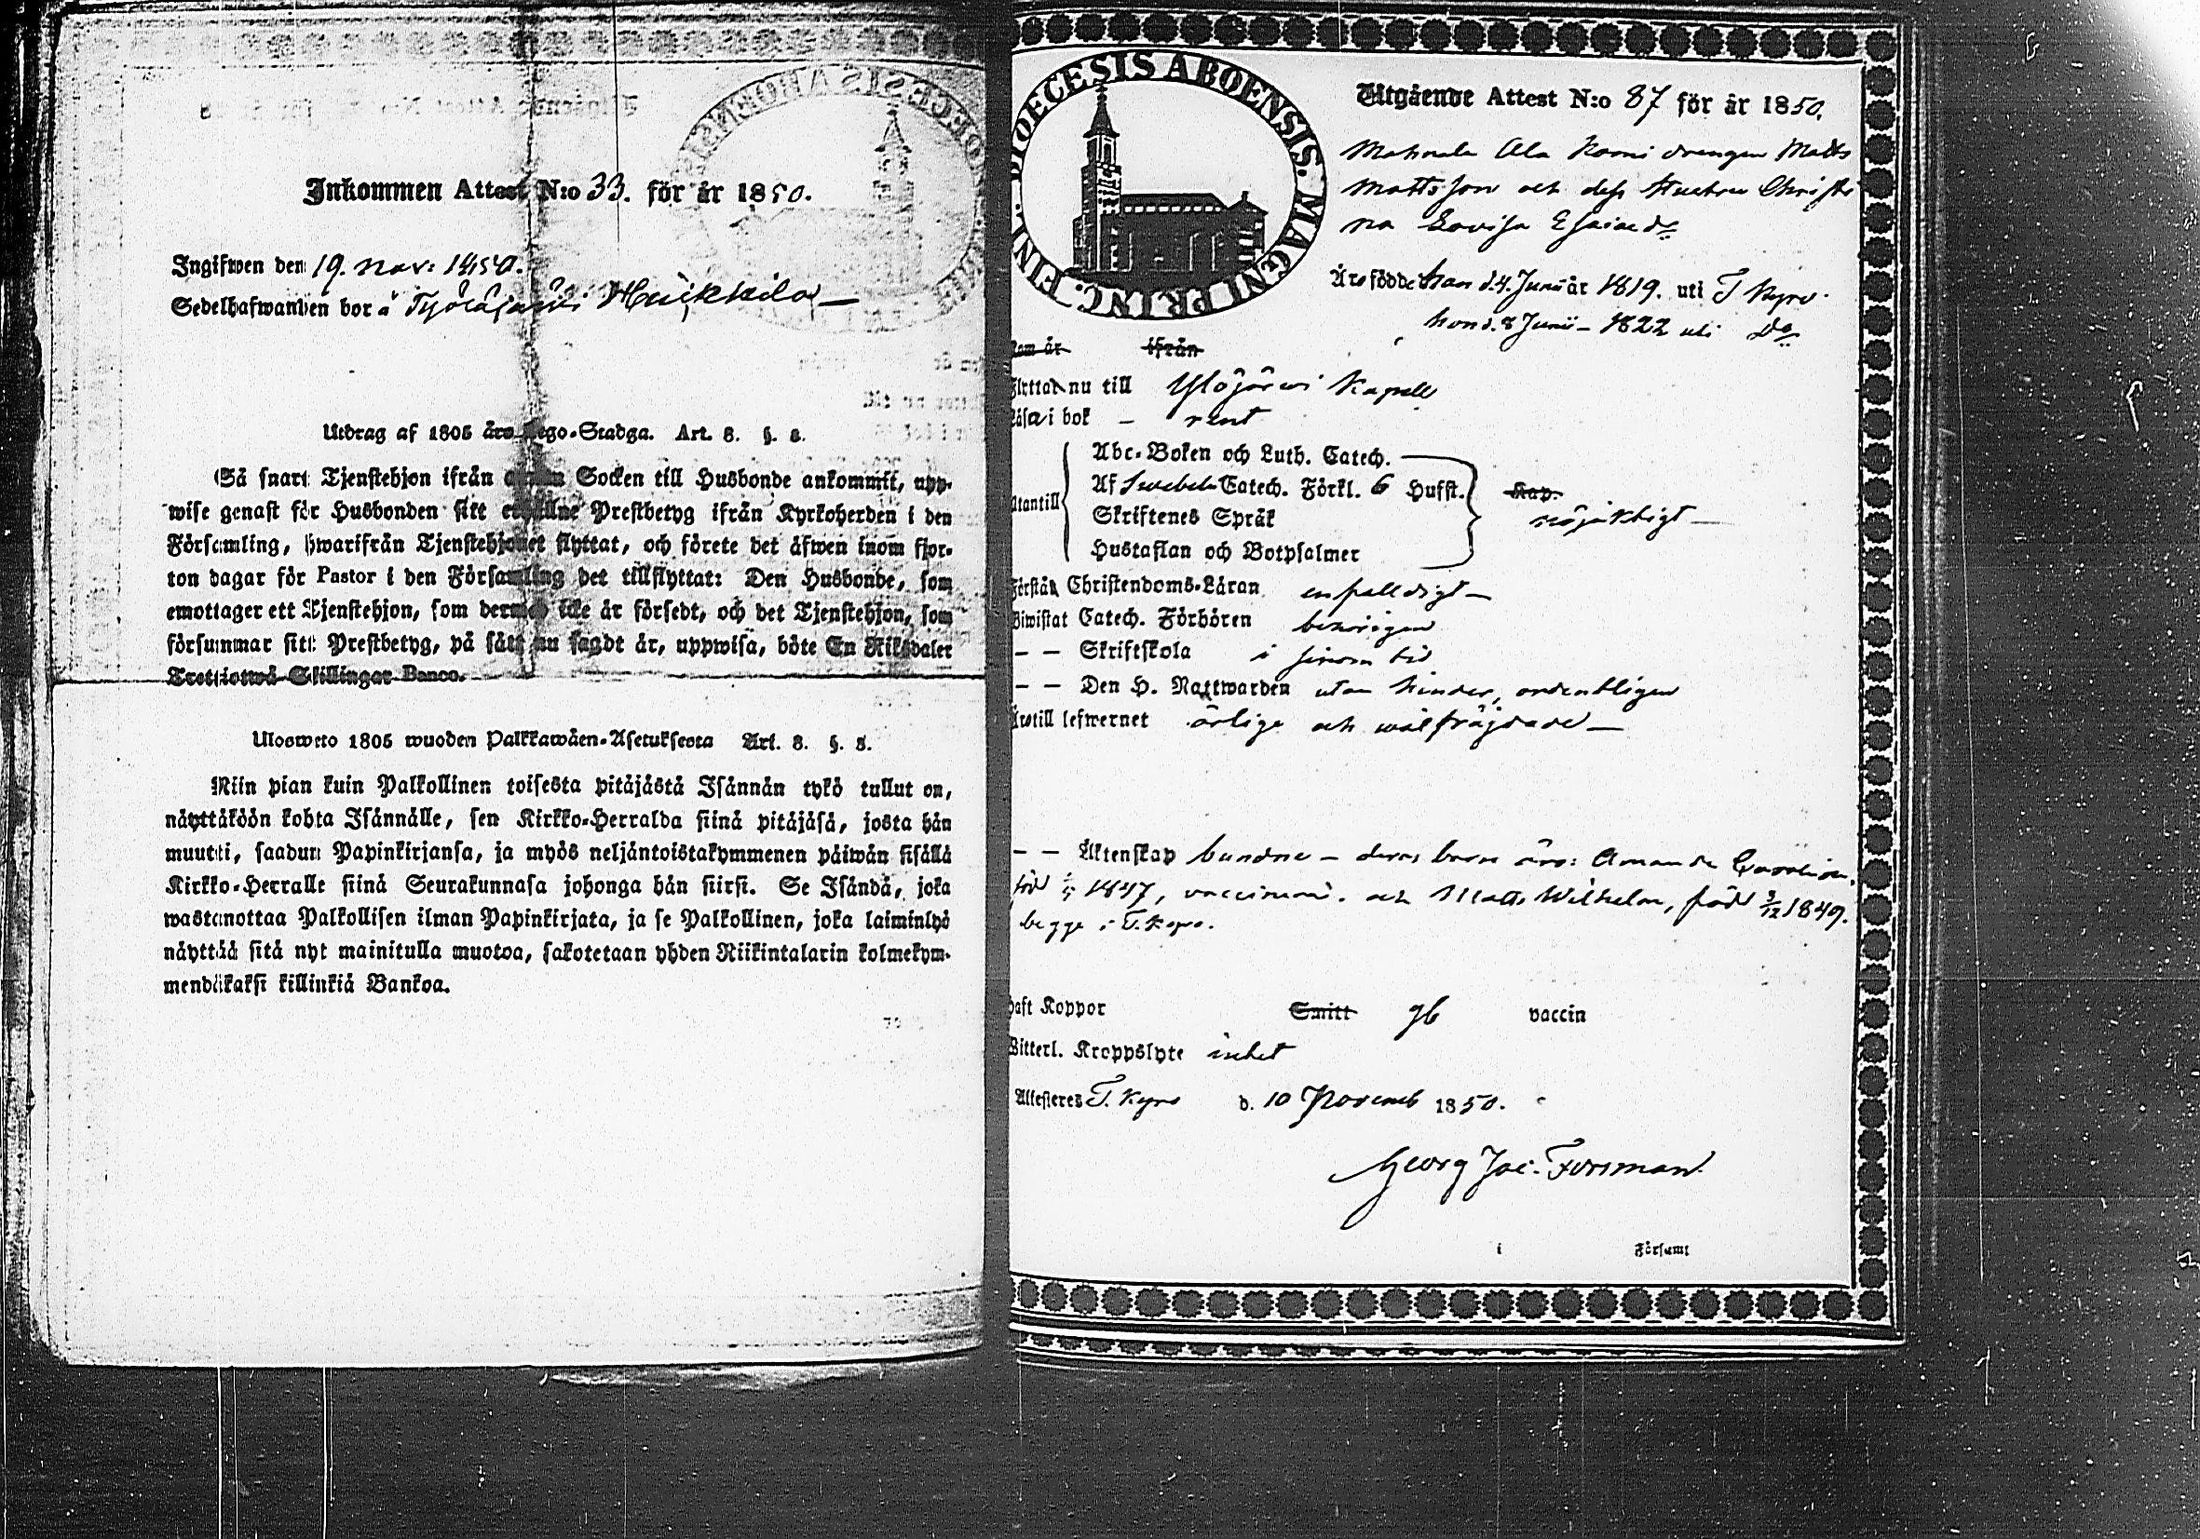 Inkommen Attest N:o 33. för år 1850.
Ingifwen den 19. nov: 1850.
Sedelhafwanden bor å Työläjärvi Huikkila
Utdrag af 1805 års Lego-Stadga. Art. 8. §. 8.
Så snart Tjenstehjon ifrån annan Socken till Husbonde ankommit, upp-
wise genast för Husbonden sitt erhållne Prestbetyg ifrån Kyrkoherden i den
Församling, hwarifrån Tjenstehjonet flyttat, och förete det äfwen inom fjor-
ton dagar för Pastor i den Församling det tillflyttat: Den Husbonde, som
emottager ett Tjenstehjon, som dermed icke är försedt, och det Tjenstehjon, som
försummar sitt Prestbetyg, på sätt nu sagdt är, uppwisa, böte En Riksdaler
Trettiotwå Skillingar Banco.
Ulosweto 1805 wuoden Palkkawäen-Asetuksesta Art. 8. §. 8.
Niin pian kuin Palkollinen toisesta pitäjästä Isännän tykö tullut on,
näyttäköön kohta Isännälle, sen Kirkko-Herralda siinä pitäjäsä, josta hän
muutti, saadun Papinkirjansa, ja myös neljäntoistakymmenen päiwän sisällä
Kirkko-Herralle siinä Seurakunnasa johonga hän siirsi. Se Isändä, joka
wastanottaa Palkollisen ilman Papinkirjata, ja se Palkollinen, joka laiminlyö
näyttää sitä nyt mainitulla muotoa, sakotetaan yhden Riikintalarin kolmekym-
mendäkaksi killinkiä Bankoa.
DIOECESIS ABOENSIS. MAGNI PRINC. FINL.
Utgående Attest N:o 87 för år 1850.
Mahnala Ala Komi drengen Matts
Mattsson och dess Hustru Christi
na Lovisa Esaiaedr
Äro födde han d. 4. Junii år 1819. uti T Kyro
hon d. 8 Junii – 1822 uti Do
Kom år ifrån
Flyttat nu till Ylöjärwi Kapell
Läsa i bok – rent
Utantill
Abc-Boken och Luth. Catech.
Af Swebeli Catech. Förkl. 6 Hufst. Kap.
Skriftenes Språk nöjaktigt
Hustaflan och Botpsalmer
Förstå Christendoms-Läran enfalldigt
Biwistat Catech. Förhören behörigen
– – Skriftskola i sinom tid
– – Den H. Nattwarden utan hinder, ordentligen
Äro till lefwernet ärlige och wälfrägdade
– – Äktenskap bundne – deras barn äro: Amanda Carolina,
född 1847, vaccinerad. och Matts Wilhelm, född 3/12 1849.
begge i T. Kyro.
Haft Koppor Smitt gb vaccin
Witterl. Kroppslyte intet
Attesteres T. Kyro d. 10 Novemb 1850.
Georg Jac. Forsman
i Församl